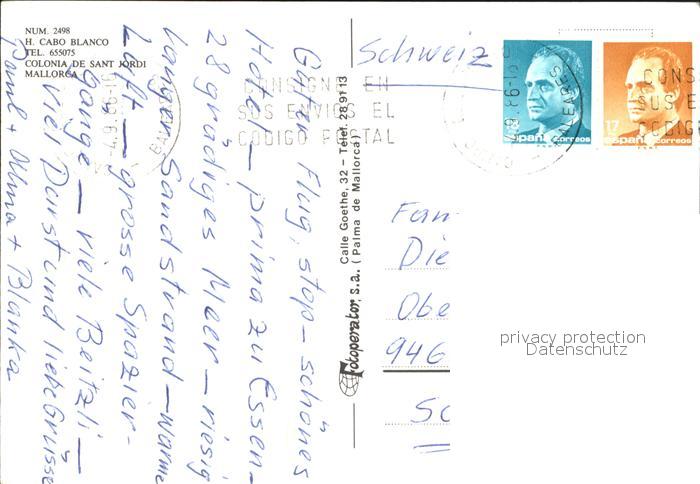 NUM. 2498
H. CABO BLANCO
TEL. 655075
COLONIA DE SANT JORDI
MALLORCA
Guten Flug, stop – schönes
Hotel – prima zu Essen –
28 grädiges Meer – riesig
langer Sandstrand – warme
Luft – grosse Spazier-
gänge – viele Beitzli –
viel Durst und liebe Grüsse
Paul + Alma + Blanka
Fotoperator, s.a. Calle Goethe, 32 – Telef. 28 91 13
(Palma de Mallorca)
Schweiz
CONSIGNE EN
SUS ENVIOS EL
CODIGO POSTAL
BALEARES
España correos
17
España correos
CONS
SUS E
CODIG
Fam
Die
Obe
946
Sc
privacy protection
Datenschutz